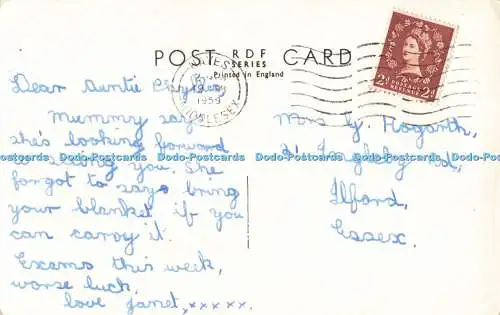 POST RDF CARD
SERIES
Printed in England
1959
MIDDLESEX
2d 2d
POSTAGE
REVENUE
Dear Auntie
Mummy says
she's looking forward
to seeing you. She
forgot to say bring
your blanket if you
can carry it.
Exams this week,
worse luck.
love Janet, xxxxx.
Mrs G. Hogarth,
Rd,
Ilford,
Essex.
Dodo-Postcards Dodo-Postcards Dodo-Postcards Dodo-Postcards